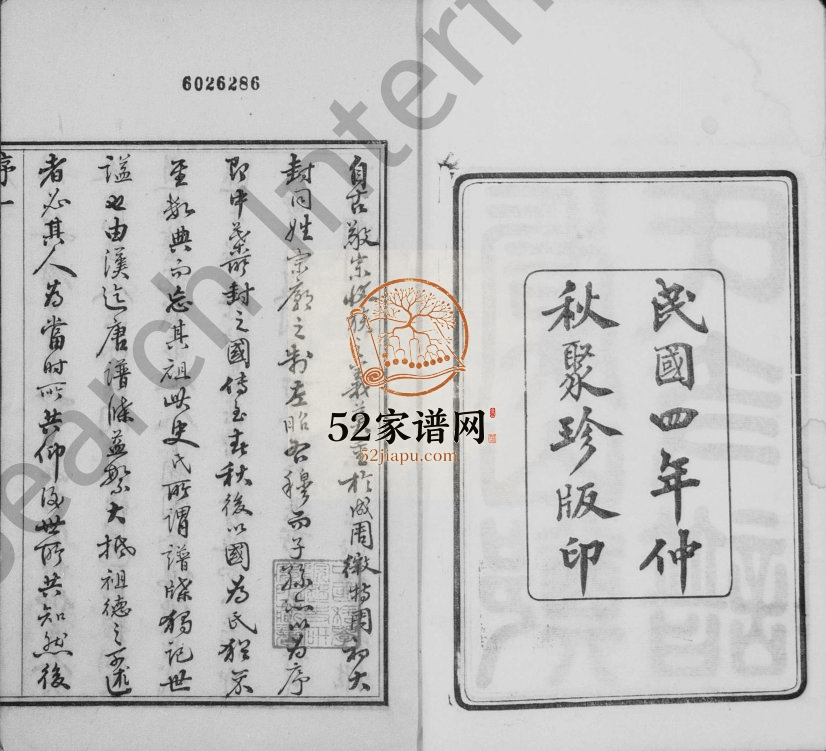 6026286
民國四年仲
秋聚珍版印
自古敬宗收族之義 重於成周微特周初大
封同姓宗廟之制左昭右穆而子孫 以為序
即中葉所封之國傳至春秋後以國為氏猶
至 典而忘其祖此史氏所謂譜牒獨記世
謚也由漢迄唐譜牒益繁大抵祖德之可述
者必其人為當時所共仰後世所共知然後
序一
52家谱网
52jiapu.com
earch Intern